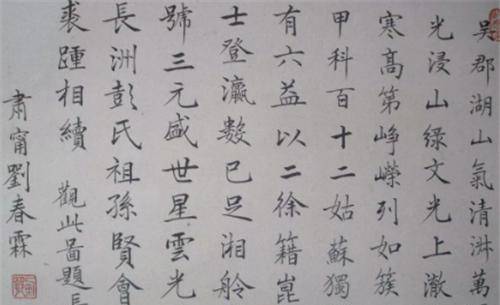 吳郡湖山氣清淑萬
光浸山綠文光上澈
寒高第崢嶸列如簇
甲科百十二姑蘇獨
有六益以二徐籍崑
士登瀛數已足湘舲
號三元盛世星雲光
長洲彭氏祖孫賢會
裘踵相續 觀此啚題長
肅甯劉春霖